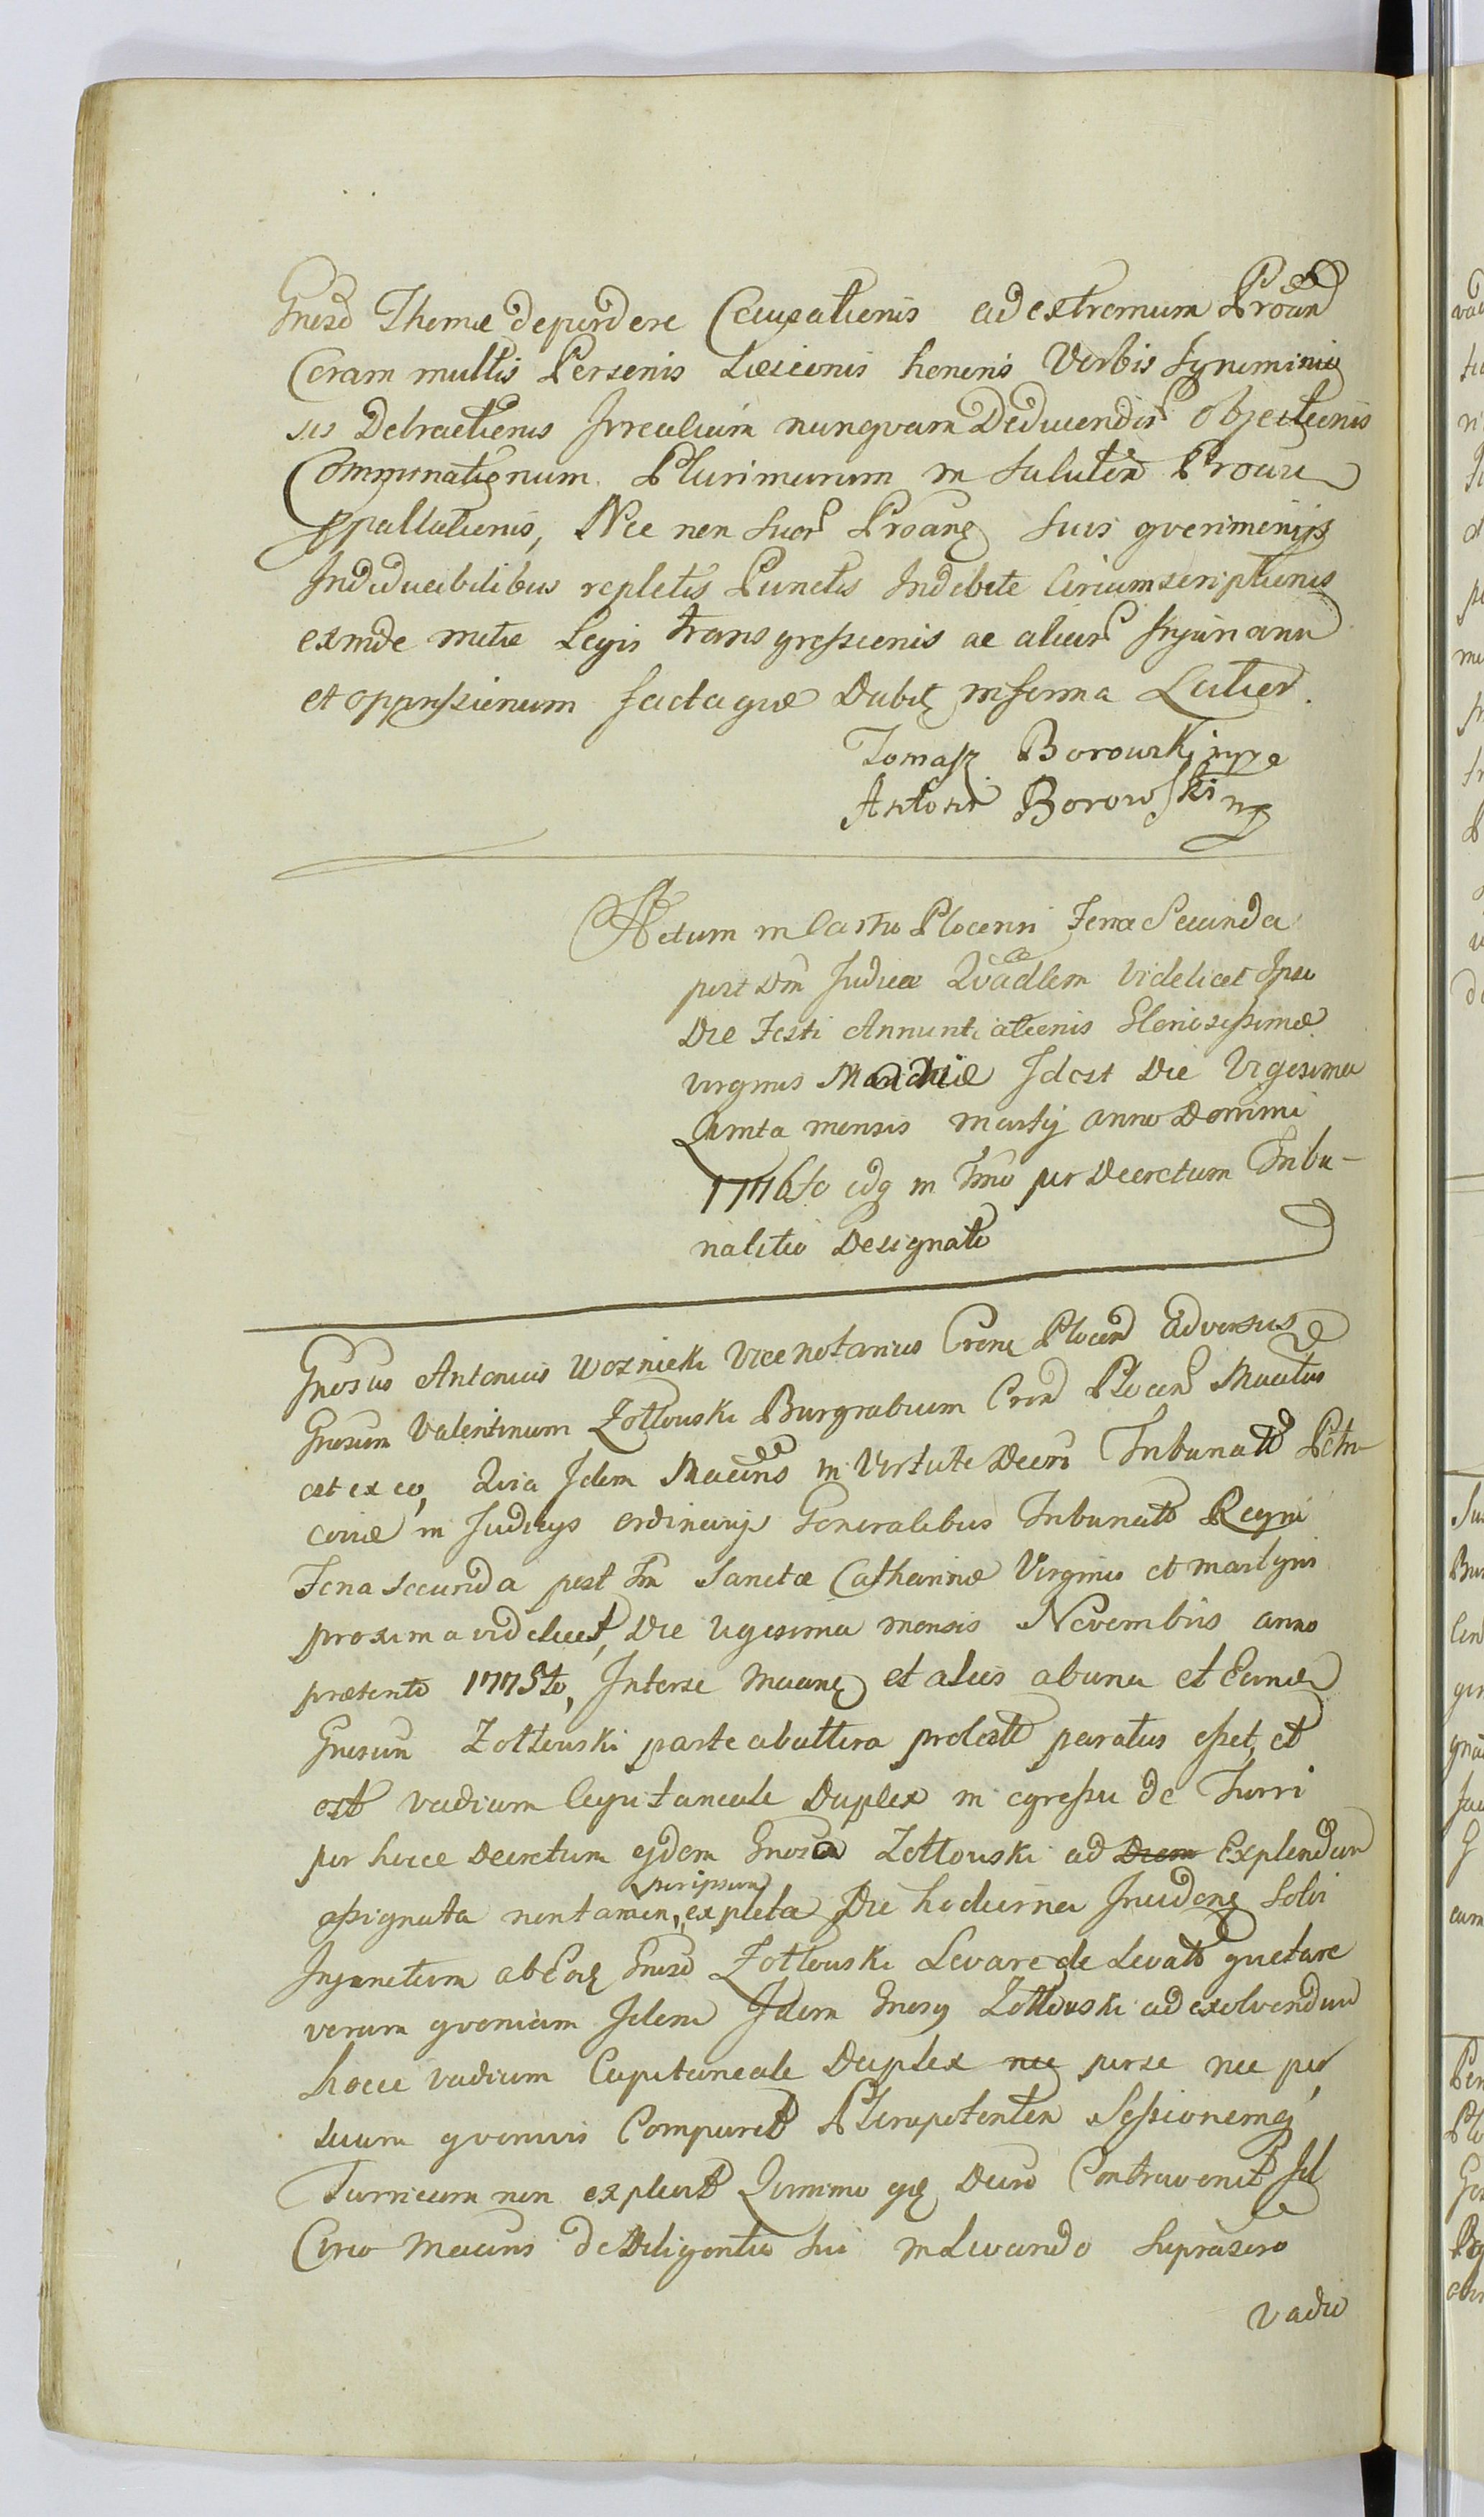 Gnoso Thoma deperdere Causationis ad extremum Proan
Coram multis Personis Læsionis honoris Verbis Ignominio
sis Detractionis Irrealium nunquam Deducendor Objectionis
Comminationum Plurimarum in salutem Procu
ppallationis, Nec non suor Proanq suis querimonijs
Indeducibilibus repletis Punctis Indebite Circumscriptionis
exinde mitæ Legis transgressionis ac alior Injurianu
et oppressionum factaque Dabit in forma Latior.
Tomasz Borowski mppa
Antoni Borowski mp
Actum in Castro Plocensi Feria Secunda
post Dm Judica Quadlem Videlicet Ipso
Die Festi Annuntiationis Gloriosissimæ
virginis Mariæ Idest Die Vigesima
Quinta mensis martij anno Domini
1776to idq in Fmo per Decretum Tribu-
nalitio Designato
Gnosus Antonius Woznicki Vice notarius Cronę Plocen Adversus
Gnosum Valentinum Zołtowski Burgrabium Cron Plocen Mactus
est ex eo, Quia Idem Macins in Virtute Decri Tribunatt Petri-
coviæ in Judicijs ordinarijs Generalibus Tribunatt Regni
Feria Secunda post Fm Sanctæ Catharinæ Virginis et martyris
proxima videlicet, Die vigesima mensis Novembris anno
prætento 1775to, Interse Macinę et alios abuna et Eunde
Gnosum Zołtowski parte abaltera prolatt paratus esset, et
est vadium Capitaneale Duplex in egressu de Turri
per hocce Decretum ejdem Gnoso Zołtowski ad Explendum
assignata non tamen, per ipsum expleta Die hodierna Incidenę Solvi
Injunctum ab Eodę Gnoso Zołtowski Levare de Levatt quetare
verum quoniam Idem Idem Gnosg Zołtowski ad exolvendum
hocce vadium Capitaneale Duplex nec perse nec per
suum quemvis Comparet Plenipotentem Sessionemq
Turricam non explevit Quinimo eję Decro Contravenit Id
Circo Macins de Diligentia sui in Levando Suprasero
vadio